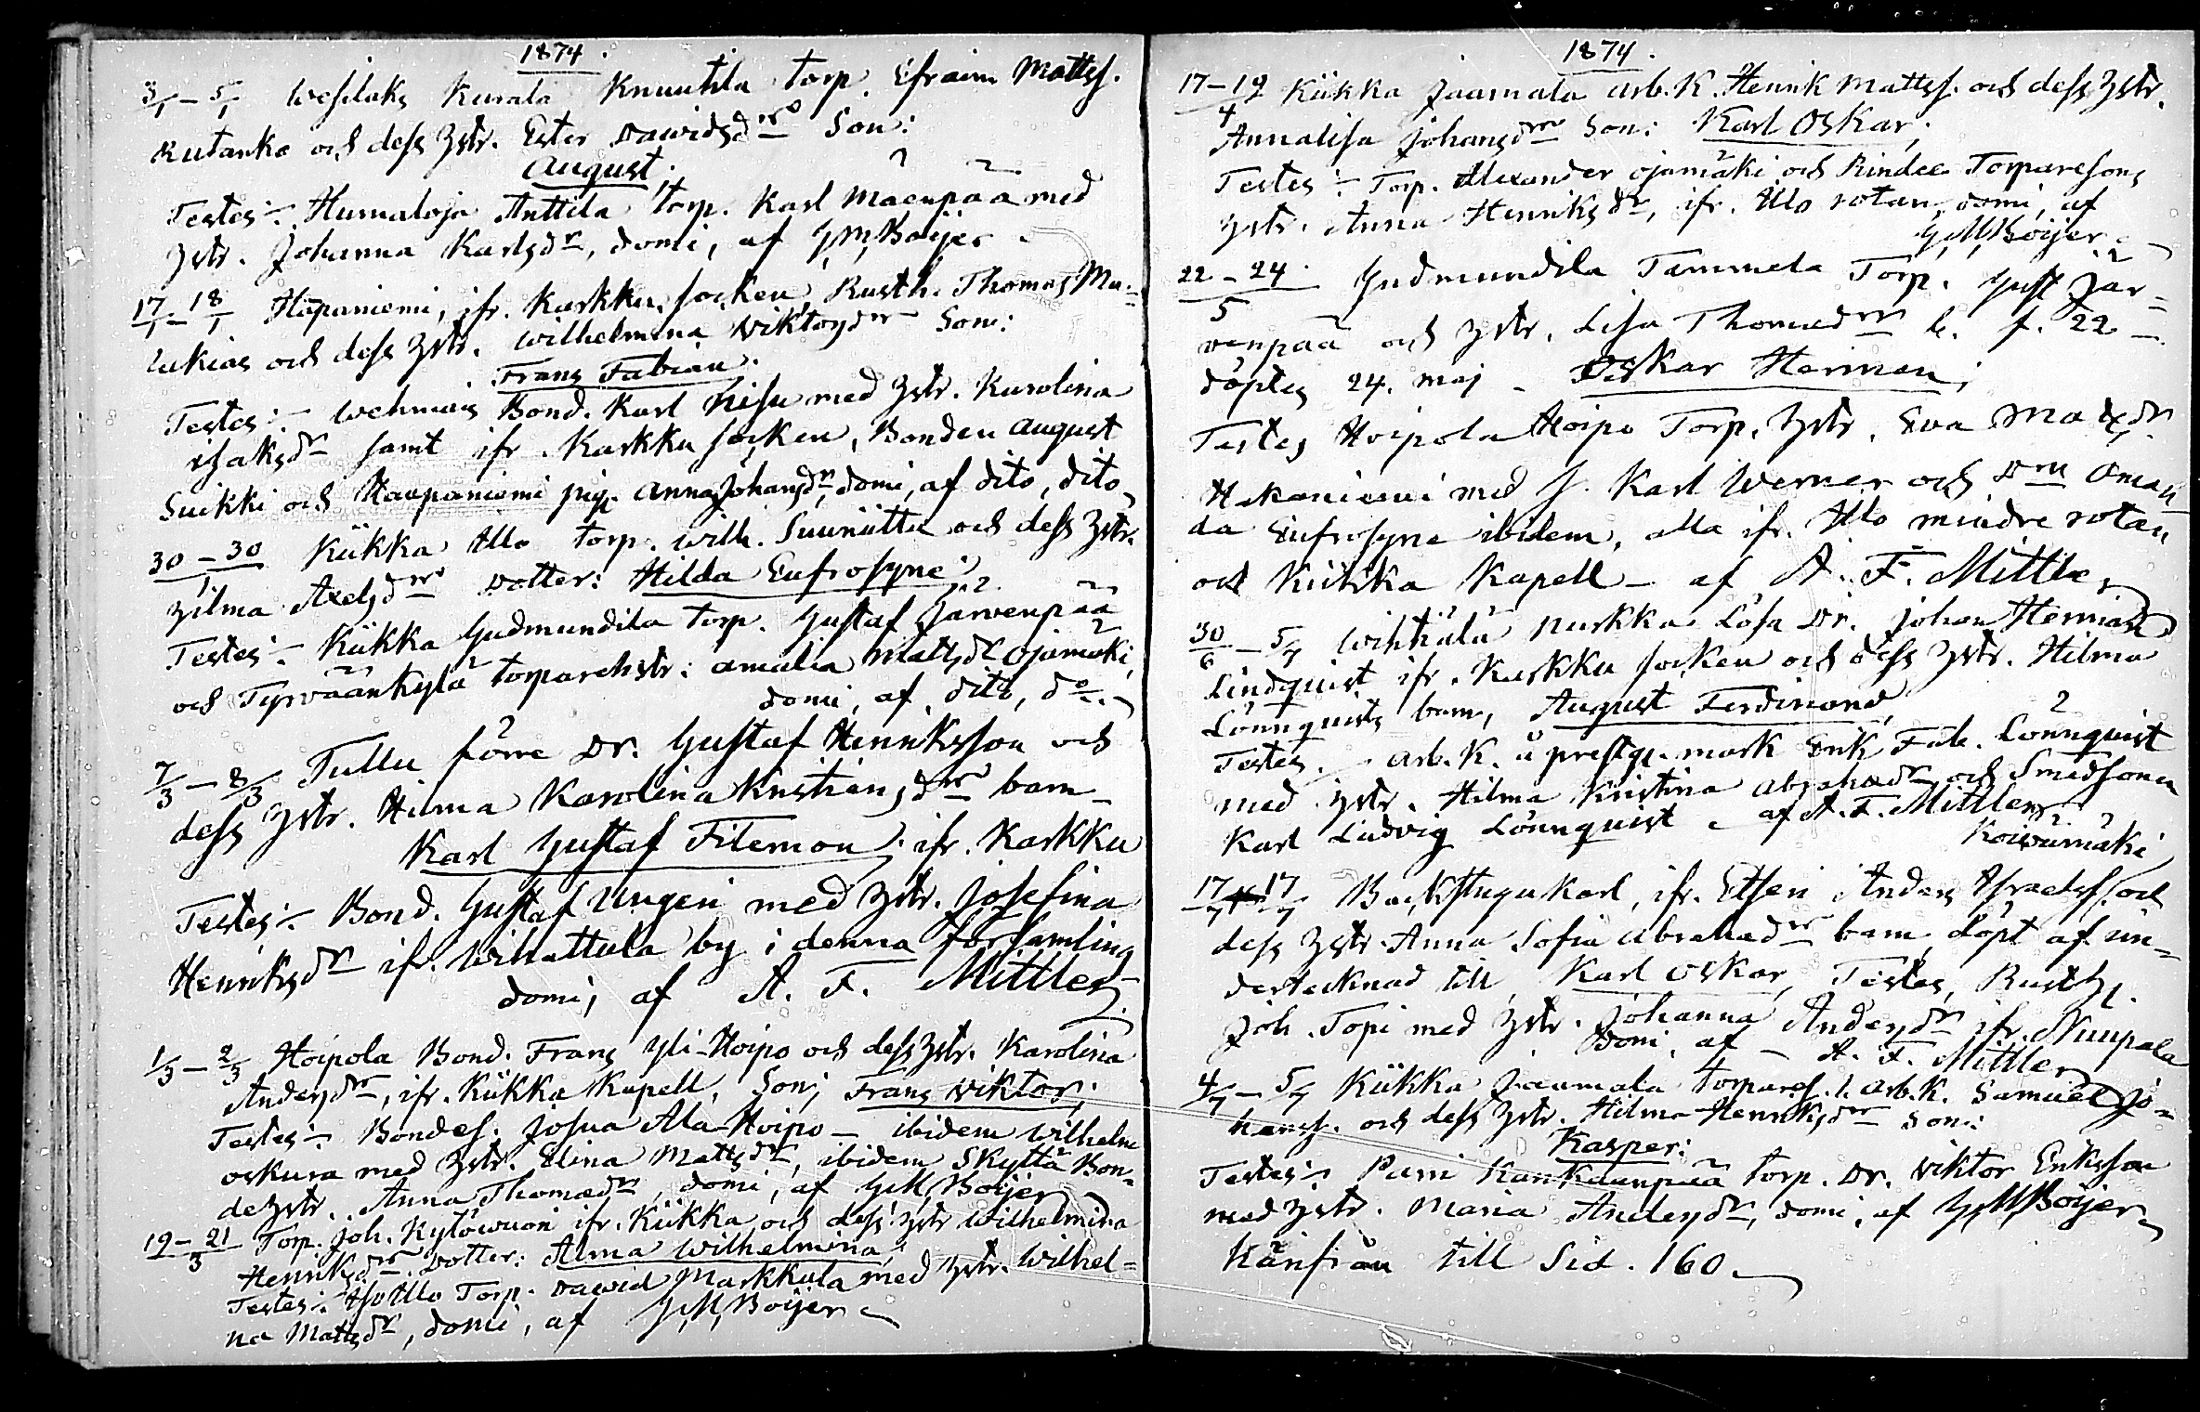 1874.
3/1 – 5/1 Wesilaks Kurala Knuutila torp. Efraim Mattss.
Kutanko och dess hstr. Ester Dawidsdrs Son:
August.
Testes:– Humaloja Anttila torp. Karl Maenpää med
hstr. Johanna Karlsdr, domi, af G.M. Boijer
17/1 – 18/1 Hapaniemi, ifr. Karkku socken, Rusth. Thomas Ma=
lukias och dess hstr. Wilhelmina Wiktorsdrs Son:
Frans Fabian.
Testes:– Wehmais Bond. Karl Nisu med hstr. Karolina
Isaksdr samt ifr. Karkku socken, Bonden August
Suikki och Haapaniemi pig. Anna Johansdr, domi, af dito, dito
30 – 30/1 Kiikka Illo torp. Wilh. Suuniittu och dess hstr.
Hilma Axelsdrs Dotter: Hilda Eufrosyne;
Testes:– Kiikka Gudmundila torp. Gustaf Jarwenpää
och Tyrväänkylä torparehstr: Amalia Mattsdr Ojamäki,
domi, af, dito, do.
7/3 – 8/3 Tullu förre Dr. Gustaf Henriksson och
dess hstr. Hilma Karolina Kristiansdrs barn
Karl Gustaf Filemon, ifr. Karkku
Testes:– Bond. Gustaf Ungeri med hstr. Josefina
Henriksdr ifr. Wihattula by i denna församling
domi, af A. F. Mittler.
1/3 – 2/3 Hoipola Bond. Frans Yli-Hoipo och dess hstr. Karolina
Andersdr, ifr. Kiikka Kapell, Son; Frans Wiktor;
Testes:– Bondes. Josua Ala-Hoipo – ibidem Wilhelm
Oskura med hstr. Elina Mattsdr, ibidem Skyttä Bon=
dehstr. Anna Thomædr, domi, af G.M. Boijer
19 – 21/3 Torp. Joh. Kylöwuori ifr. Kiikka och dess hstr Wilhelmina
Henriksdrs Dotter: Alma Wilhelmina,
Testes:– Iso Illo Torp. Dawid Markkula med hstr. Wilhel=
na Mattsdr, domi, af G.M. Boijer
1874.
17 – 19/4 Kiikka Jaamala arb. K. Henrik Mattss. och dess hstr.
Annalisa Johansdrs Son: Karl Oskar,
Testes:– Torp. Alexander Ojamäki och Rindee Torparesons
hstr. Anna Henriksdr, ifr. Illo rotan, domi, af
G.M. Boijer
22 – 24/5 Gudmundila Tammela Torp. Gust Jär=
venpää och hstr. Lisa Thomædrs b. f. 22
döptes 24. maj – Oskar Herman;
Testes Hoipola Hoipo Torp. hstr. Eva Matsdr
Hakaniemi med J. Karl Werner och Drn Aman
da Eufrosyne ibidem, alla ifr. Illo mindre rotan
och Kiikka Kapell – af A. F. Mittler
30/6 – 5/7 Wihkälä Nurkka Lösa Dr. Johan Herman
Lindquist ifr. Karkku socken och dess hstr. Hilma
Lönnquists barn, August Ferdinand
Testes. – Arb. K. å prestg. mark Erik Fab. Lönnquist
med hstr. Hilma Kristina Abrahadr och Smedsonen
Karl Ludvig Lönnquist – af A. F. Mittler
Koiwumäki
17/7 17/7 Backstugukarl, ifr. Etseri Anders Israelss. och
dess hstr. Anna Sofia Abrahadrs barn, döpt af un=
dertecknad till Karl Oskar, Testes, Rusth.
Joh. Topi med hstr. Johanna Andersdr ifr. Nuupala
Domi, af – A. F. Mittler
4/7 – 5/7 Kiikka Jaamala torpares. l. arb. K. Samuel Jo=
hanss. och dess hstr. Hilma Henriksdrs Son:
Kasper:
Testes:– Pani Kankaanpää torp. Dr. Wiktor Eriksson
med hstr. Maria Andersdr, domi, af G.M. Boijer
Härifrån till Sid. 160.